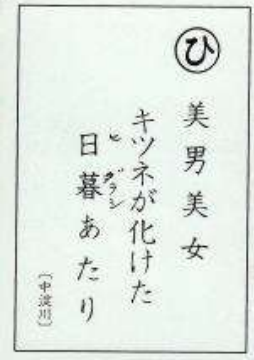 ひ
美男美女
キツネが化けた
日暮あたり
ヒグラシ
〔中渡川〕